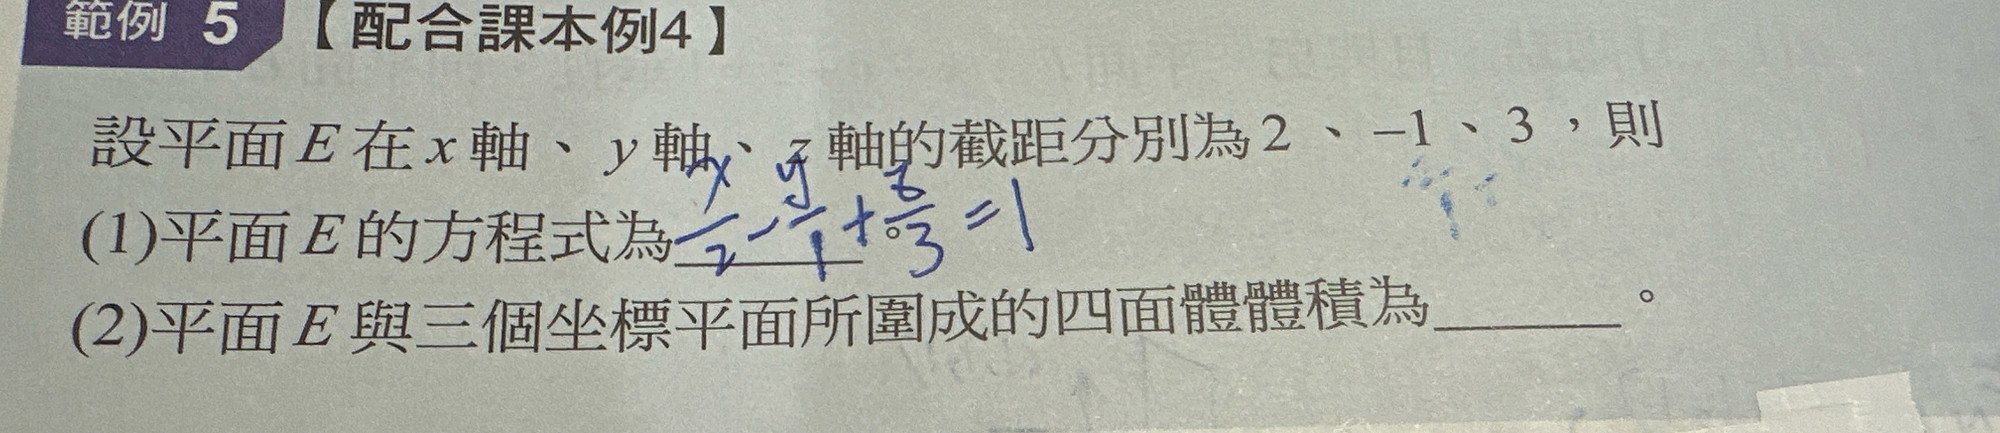 範例 5 【配合課本例4】
設平面E在x軸、y軸、z軸的截距分別為2、-1、3，則
(1)平面E的方程式為 x/2 - y/1 + z/3 = 1 。
(2)平面E與三個坐標平面所圍成的四面體體積為______。